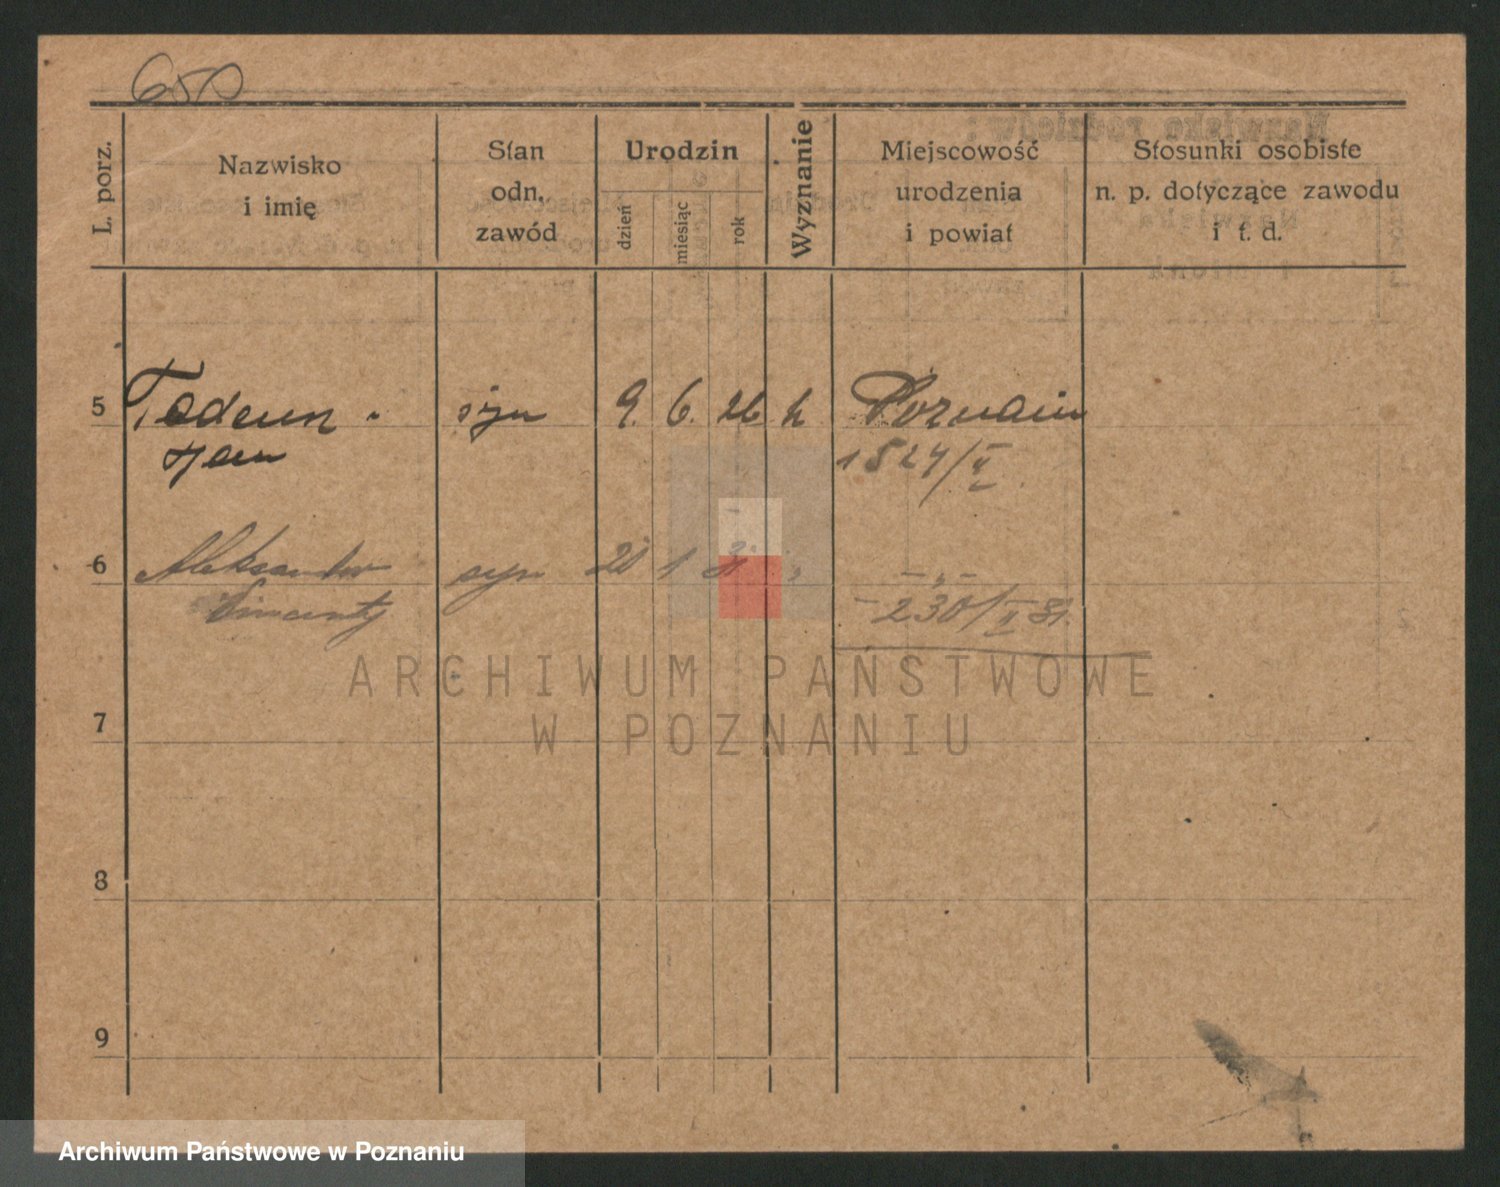 650
L. porz.
Nazwisko
i imię
Stan
odn.
zawód
Urodzin
dzień
miesiąc
rok
Wyznanie
Miejscowość
urodzenia
i powiat
Stosunki osobiste
n. p. dotyczące zawodu
i t. d.
5 syn 9. 6. 26 k Poznań
Jan 1524/V
6 Aleksander syn 1 31 -„-
Wincenty -230/II 31.
7
8
9
ARCHIWUM PAŃSTWOWE
W POZNANIU
Archiwum Państwowe w Poznaniu